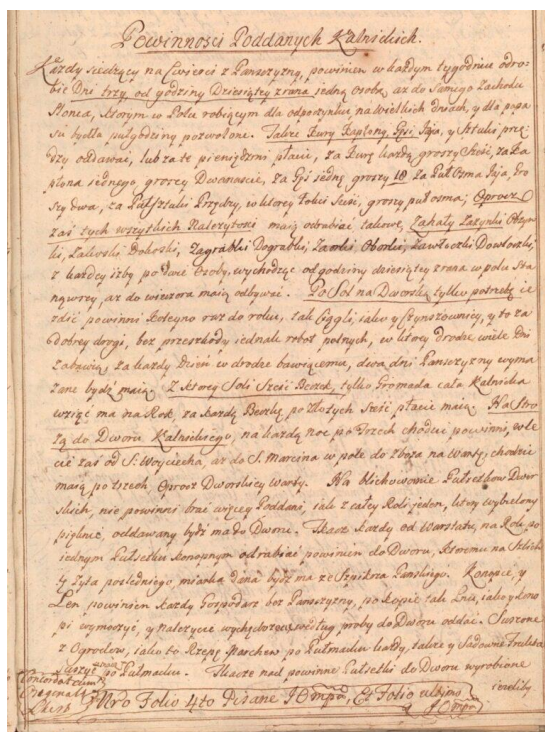 Powinnosci Poddanych Kalnickich.
Kazdy siedzący na Cwierci z Panszczyzną, powinien w kazdym tygodniu odro-
bic Dni trzy, od godziny Dziesiątey z rana iedną osobą, az do Samego Zachodu
Słonca, ktorym w Polu robiącym dla odpoczynku na wielkich dniach, y dla popa
su bydła pułgodziny pozwolone. Takze Kury Kapłony, Gęsi Jaja, y Sztuki przę
dzy oddawac, lub za te pieniędzmi płacic, za Kurę kazdą groszy Szesc, za Ka
płona iednego, groszy Dwanascie, za Gęs iedną groszy 18 za Puł Osma Jaja, Gro
szy dwa, za Puł sztuki Przędzy, w ktorey łokci Szesc, groszy puł osma; Oprocz
zas tych wszystkich Nalezytosci maią odrabiac takowe, Zazynki Obzyn
ki, Zakoski Dokoski, Zagrabki Dograbki, Zaorki Oborki, Zawłoczki Dowłoczki,
z kazdey izby po dwie Osoby, wychodząc od godziny dziesiątey z rana w polu Sta
nąwszy, az do wieczora maią odbywac. Po Sol na Dworską tylko potrzebę ie
zdzic powinni koleyno raz do roku, tak Ciągli, iako y Czynszownicy, y to za
Dobrey drogi, bez przeszkody iednak robot polnych, w ktorey drodze wiele Dni
zabawią, za kazdy Dzien w drodze bawiącemu, dwa dni Panszczyzny wyma
zane bydz maią. Z ktorey Soli Szesc Beczek, tylko Gromada cała Kalnicka
wziąc ma na Rok, za kazdą Beczkę po złotych Szesc płacic maią. Na Stro
zą do Dworu Kalnickiego, na kazdą noc po Trzech chodzic powinni, w le
cie zas od S: Woyciecha, az do S. Marcina w pole do zboza na Wartę, chodzic
maią po trzech, oprocz Dworskiey Warty. Na blichowanie Pułsetkow Dwor
skich, nie powinni brac więcey Poddani, iak z całey Roli ieden, ktory wybielony
pięknie, oddawany bydz ma do Dworu. Tkacz kazdy od Warstatu, na Rok po
iednym Pułsetku konopnym odrabiac powinien do Dworu, ktoremu na
Zyta posledniego, miarka dana bydz ma ze Szpikrza Panskiego. Konopie, y
Len, powinien kazdy Gospodarz bez Panszczyzny, po kopie tak Lnu, iako y kono
pi wymoczyc, y nalezycie wychędozone według proby do Dworu oddac. Suszone
z Ogrodow, iako to Rzepę Marchew po Pułmacku kazdy, takze y Sadowne
suszyc po Pułmacku. Tkacze nad powinne Pułsetki do Dworu wyrobione
iezeliby
Concordat cum
Originali
Nro Folio 4to Pisane JOmppa, Et Folio ultimo
JOmppa